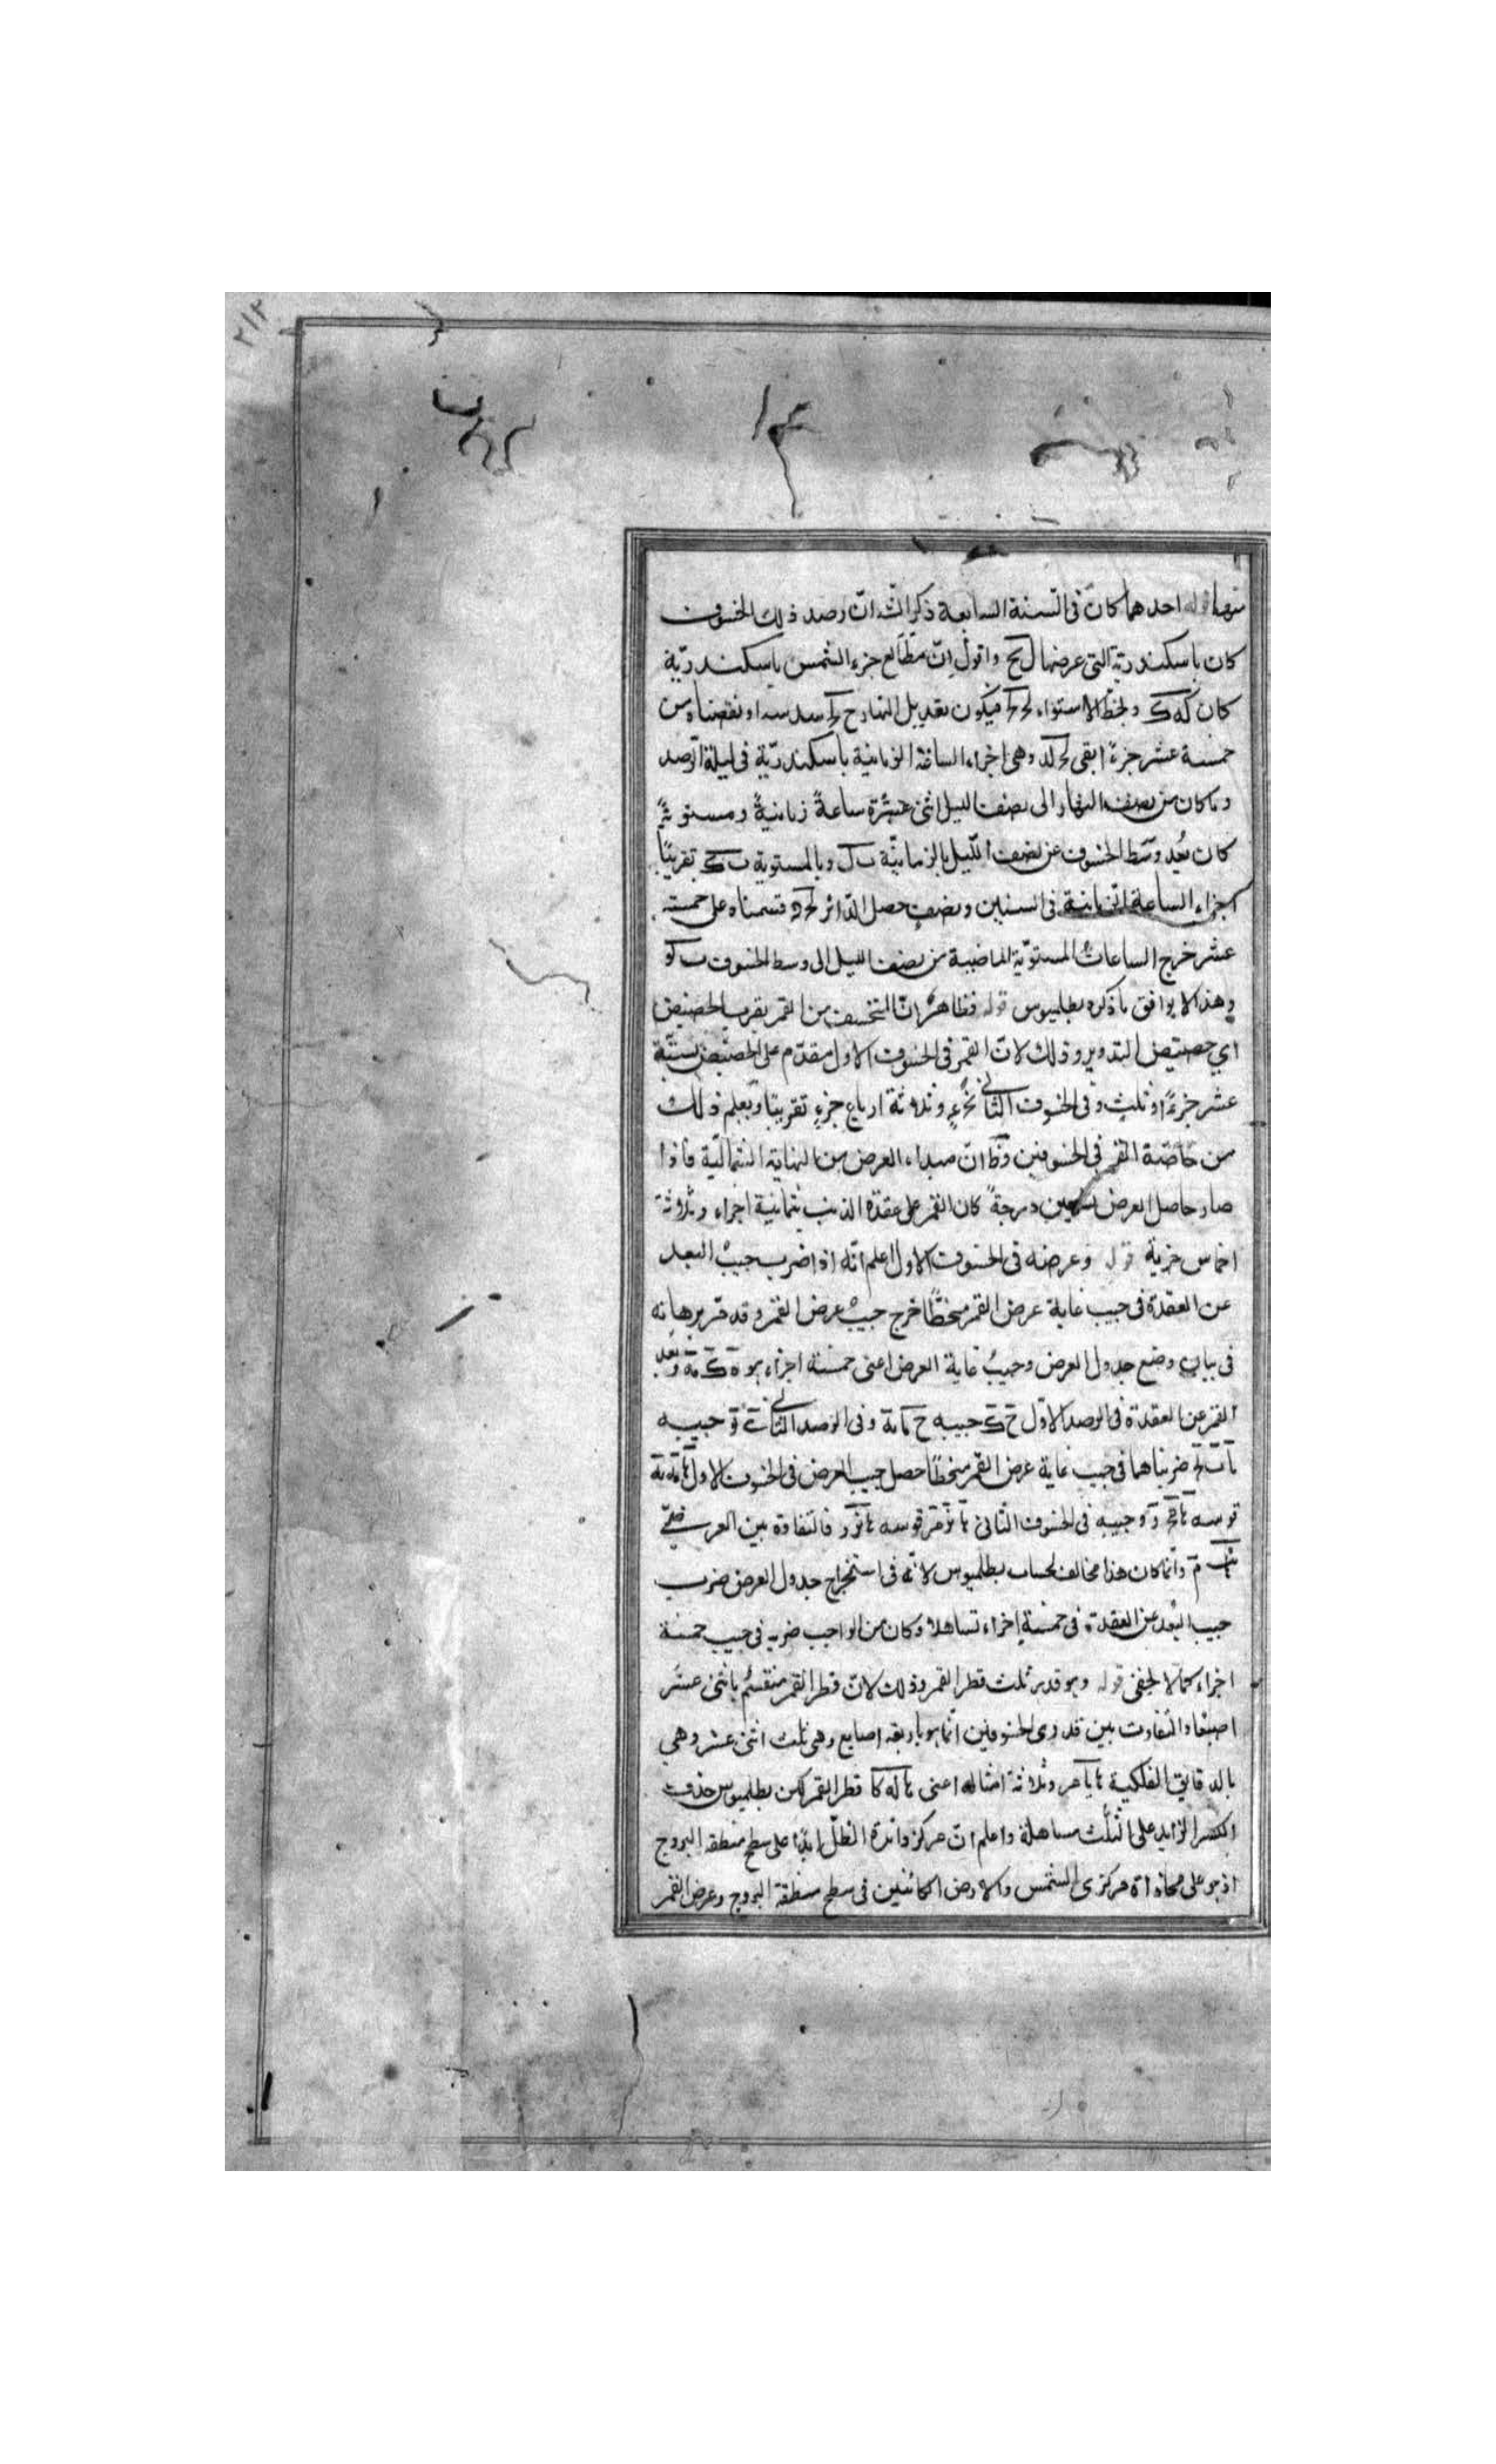 ٢١٢
منها قوله احدهما كان فى السنة السابعة ذكر الشه انّ رصد ذلك الخسوف
كان باسكندرية التى عرضها ل نح واقول انّ مطالع جزء الشمس باسكندريّة
كان كه ك وبخط الاستواء فيكون تعديل النهار سدسه ونقصناه من
خمسة عشر جزءً ابقى وهى اجزاء الساعة الزمانية باسكندريّة فى ليلة الرّصد
وما كان من نصف النهار الى نصف الليل اثنى عشرة ساعةً زمانيةً ومستويةً
كان بُعد وسَط الخسوف عن نصف اللّيل بالزمانيّة ب ل وبالمستوية ب ك تقريبًا
اجزاء الساعة الزمانية فى اسنين ونصفٍ حصل الدّائر قسمناه على خمسة
عشر خرج الساعاتُ المستويّة الماضية من نصف الليل الى وسط الخسوف ب كو
وهذا لا يوافق ما ذكره بطلميوس قوله فظاهرٌ انّ المنخسف من القمر بقرب الحضيض
اى حضيض التدوير وذلك لانّ القمر فى الخسوف الاول مقدّم على الحضيض بستّة
عشر جزءً وثلثٍ وفى الخسوف الثانى بجزءٍ وثلاثة ارباع جزءٍ تقريبًا ويُعلم ذلك
من خاصّة القمر فى الخسوفين وظ انّ مبداء العرض من النهاية الشماليّة فاذا
صار حاصل العرض تسعين درجةً كان القمر على عقدة الذنب بثمانية اجزاء وثلاثة
اخماس جزية قوله وعرضه فى الخسوف الاول اعلم انّه اذا ضرب جيبُ البعد
عن العقدة فى جيب غاية عرض القمر منحطًّا خرج جيبُ عرض القمر وقد مرّ برهانه
فى بيان وضع جدول العرض وجيبُ غاية العرض اعنى خمسة اجزاء هو وبُعد
القمر عن العقدة فى الرصد الاوّل ح ك جيبه وفى الرصد الثانى جيبه
ضربناهما فى جيب غاية عرض القمر منحطًّا حصل جيب العرض فى الخسوف الاول
قوسه وجيبه فى الخسوف الثانى قوسه فالتفاوة بين العرضين
وانّما كان هذا مخالف لحساب بطلميوس لانّه فى استخراج جدول العرض ضرب
جيب البُعد عن العقدة فى خمسةِ اجزاء تساهلًا وكان من الواجب ضربه فى جيب خمسة
اجزاء كما لا يخفى قوله وهو قدر ثلث قطر القمر وذلك لانّ قطر القمر منقسمٌ باثنى عشر
اصبعًا والتفاوت بين قدرى الخسوفين انّما هو باربعه اصابع وهى ثلث اثنى عشر وهى
بالدقايق الفلكية وثلاثة امثاله اعنى قطر القمر لكن بطلميوس حذف
الكسر الزايد على الثلث مساهلة واعلم انّ مركز دائرة الظلّ ابدًا على سطح منطقة البروج
اذ هو على محاذاة مركزى الشمس والارض الكائنين فى سطح منطقة البروج وعرض القمر